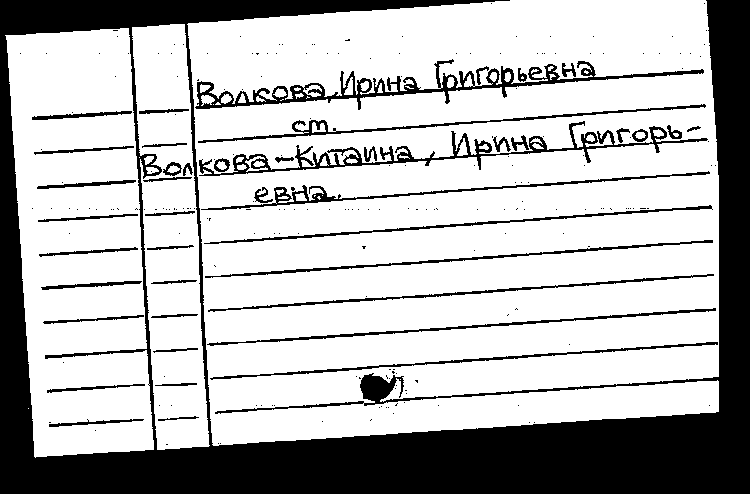 Волкова, Ирина Григорьевна
ст.
Волкова-Китаина, Ирина Григорь-
евна.